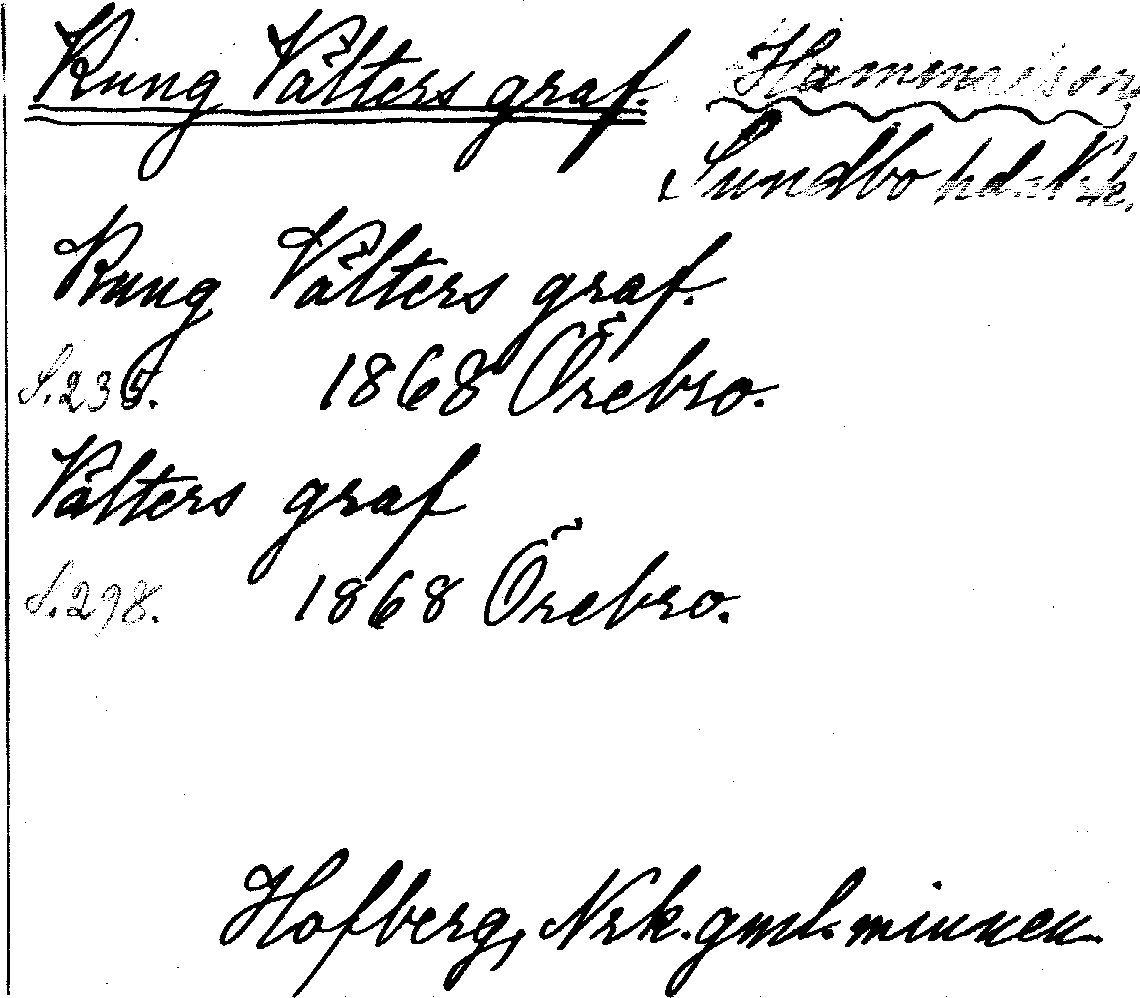 Kung Välters graf. Hammar son,
Sundbo hd. Nrke.
Kung Välters graf.
S. 235. 1868 Örebro.
Välters graf
S. 298. 1868 Örebro.
Hofberg, Nrk. gml. minnen.